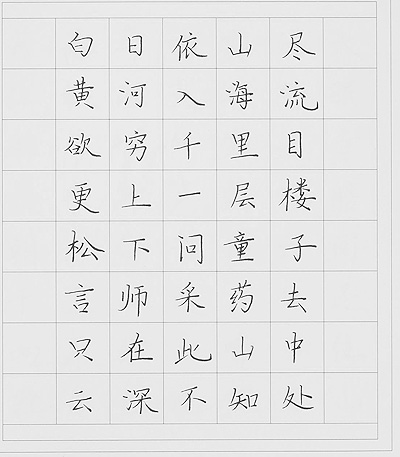 白日依山尽
黄河入海流
欲穷千里目
更上一层楼
松下问童子
言师采药去
只在此山中
云深不知处